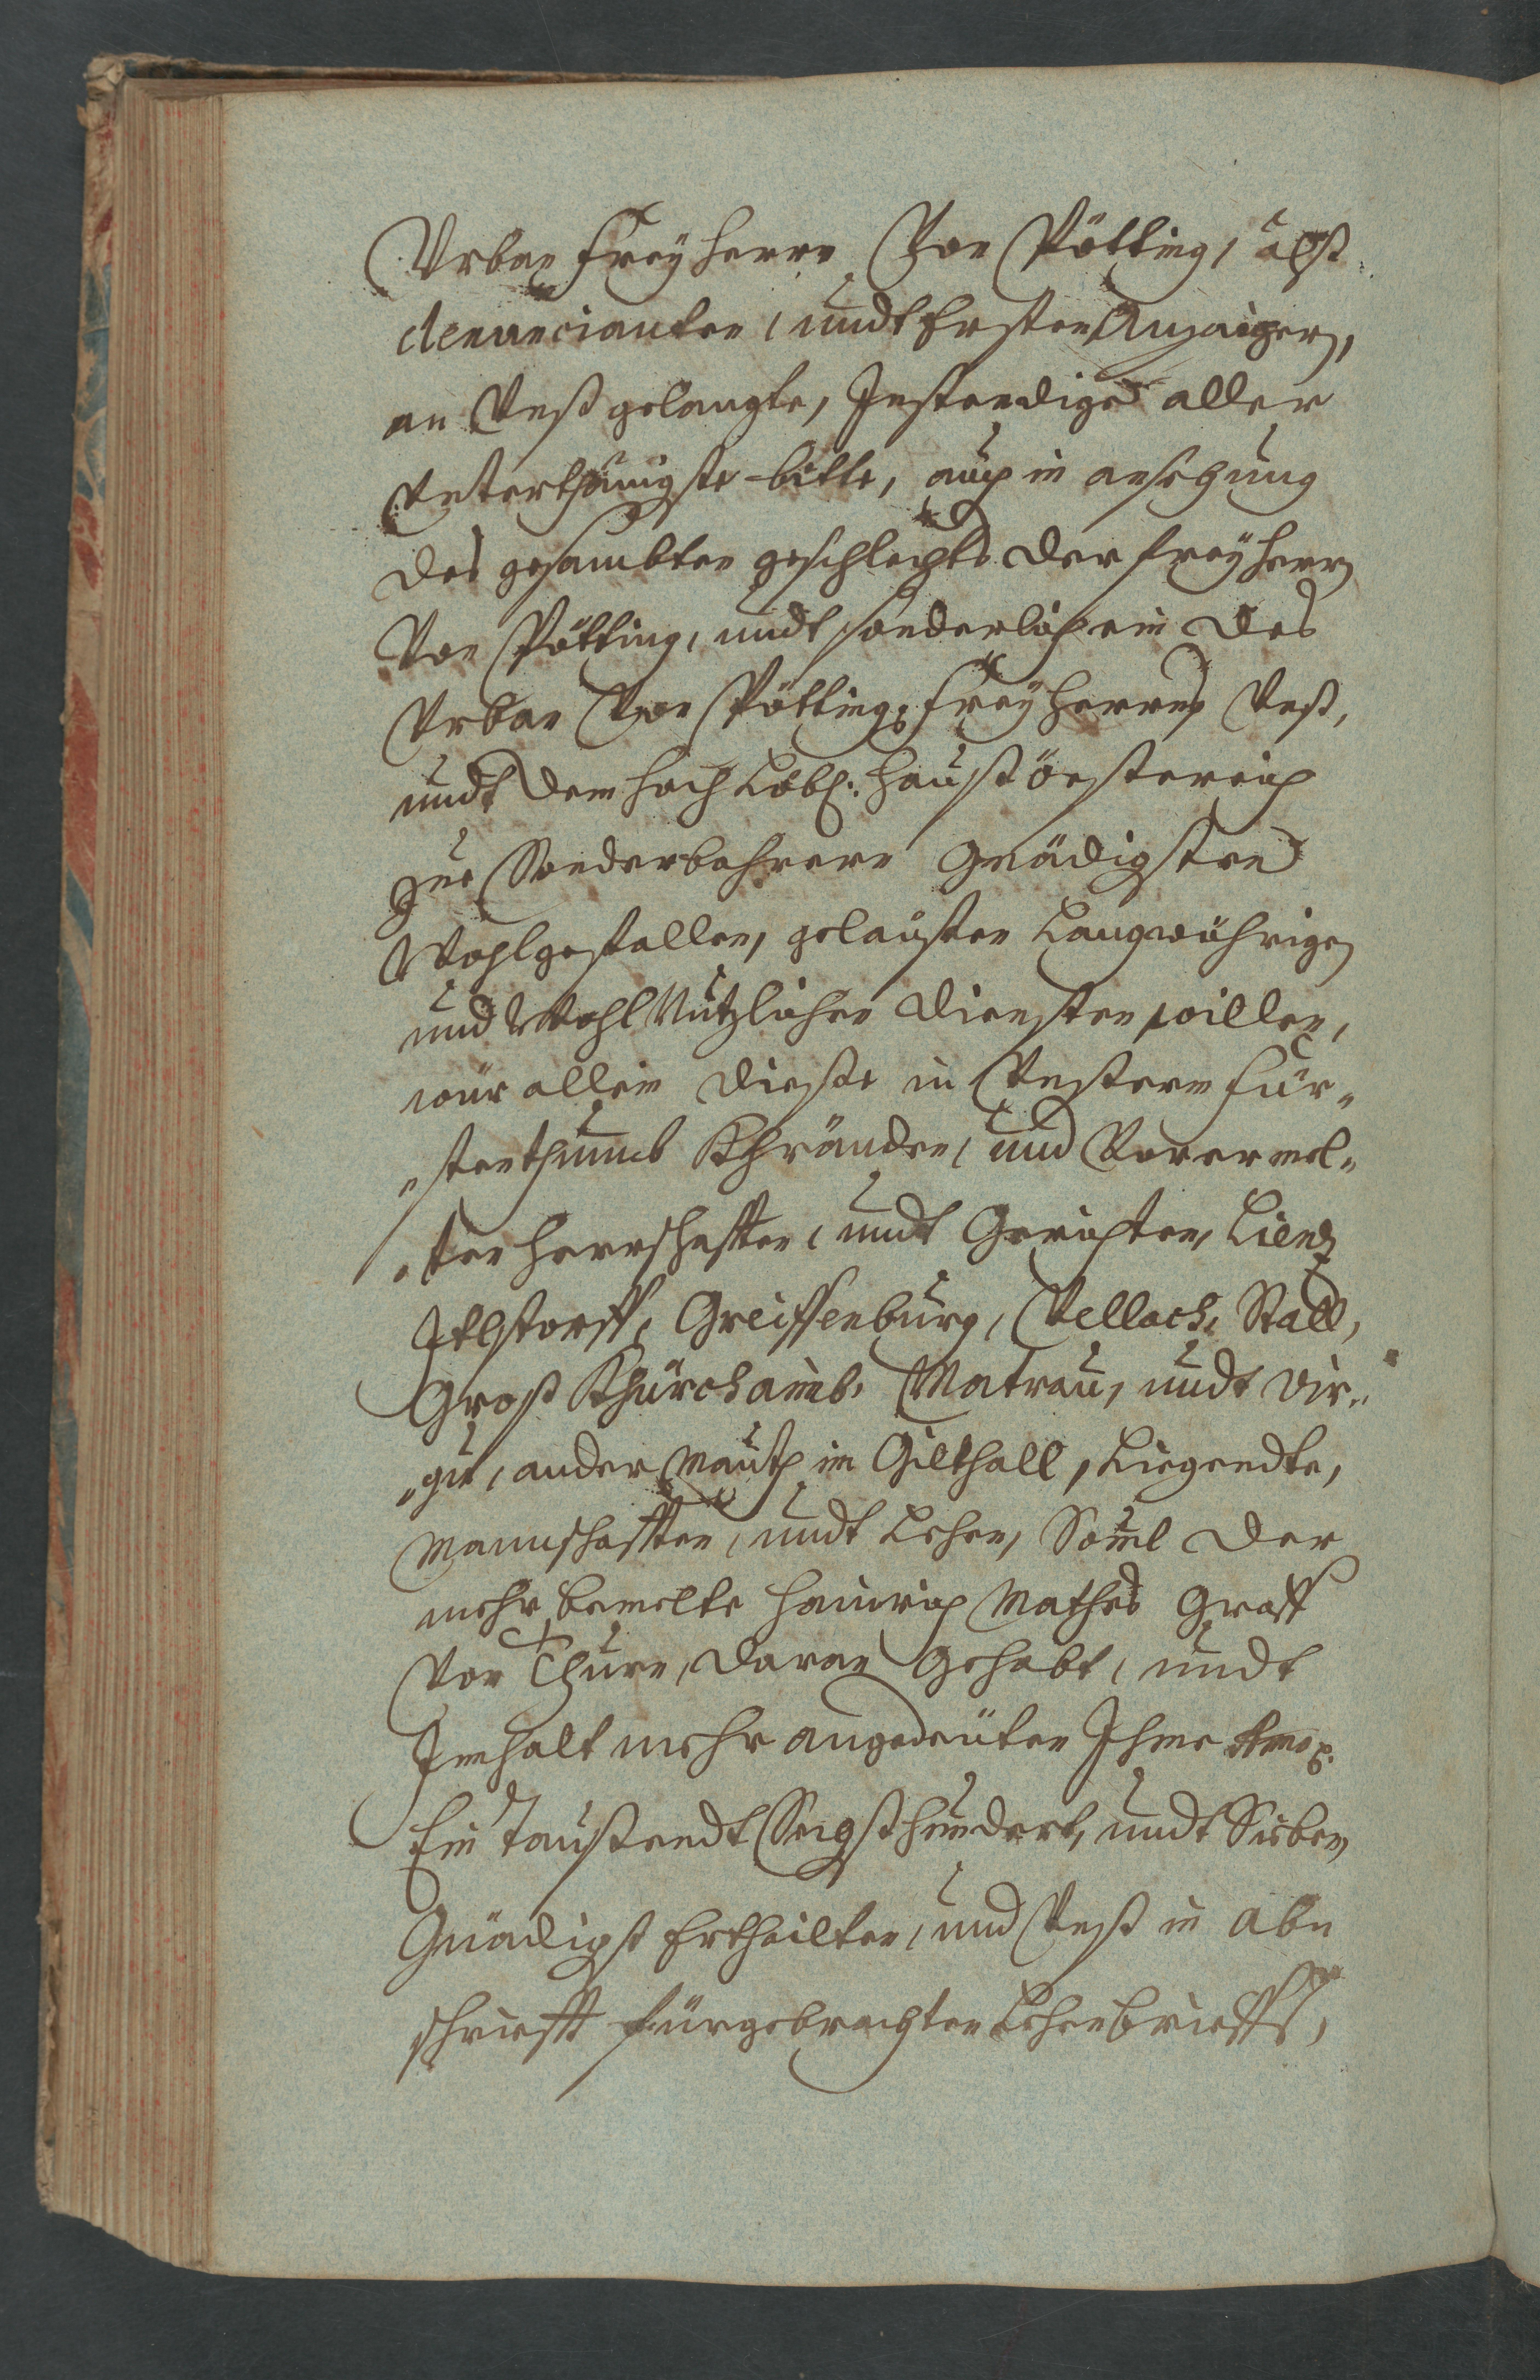 Urban Freyherrn Von Pötting, alß
denuncianten, undt Ersten Anzaiger,
an Unß gelangte, Instendige aller
Unterthänigste bitte, auch in ansehung
des gesambten geschlechts der Freyherrn
Von Pötting, undt sonderlich ein des
Urban Von Pötting Freyherrns Unß,
undt dem hoch Löbl: Hauß Össterreich
zue Sonderbahrern Gnädigsten
Wohlgefallen, gelaisten Langwührigen
und Wohl Nutzlichen diensten willen,
wür allein dieße in Unsterm Für„
„stenthumb Khärnden, und Vorermel„
„ten Herrschafften, undt Gerichten, Lienz
Itlstorff, Greiffenburg, Vellach, Stall,
Groß Khürchaimb, Matrau, undt Vir„
„gn, ander Mauth im Gilthall, Liegendte,
Mannschafften, undt Lehen, Souil der
mehr bemelte Hainrich Mathes Graff
Von Thurn, daran gehabt, undt
Innhalt mehr angedeüten Ihme
Ein Taußendt Sechsthundert, undt Siben
Gnädigst Ertheilten, und Unß in Ab„
schriefft fürgebrachten Lehenbrieffs,